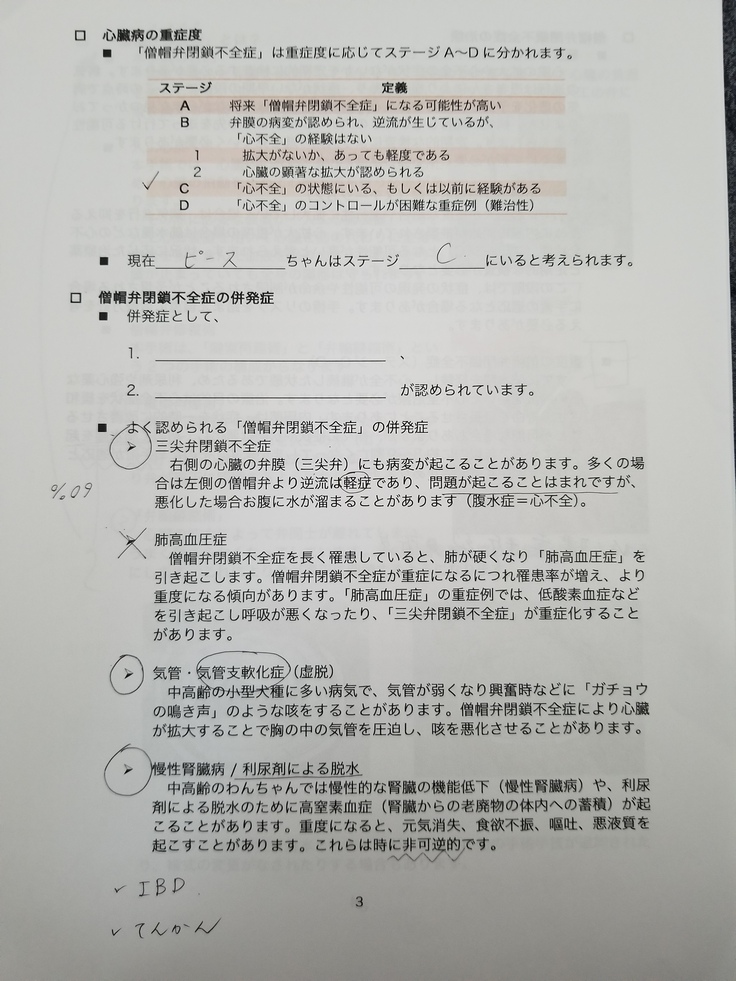 □ 心臓病の重症度
■ 「僧帽弁閉鎖不全症」は重症度に応じてステージA〜Dに分かれます。
ステージ 定義
A 将来「僧帽弁閉鎖不全症」になる可能性が高い
B 弁膜の病変が認められ、逆流が生じているが、
「心不全」の経験はない
1 拡大がないか、あっても軽度である
2 心臓の顕著な拡大が認められる
✓ C 「心不全」の状態にいる、もしくは以前に経験がある
D 「心不全」のコントロールが困難な重症例（難治性）
■ 現在 ピース ちゃんはステージ C にいると考えられます。
□ 僧帽弁閉鎖不全症の併発症
■ 併発症として、
1. 、
2. が認められています。
■ よく認められる「僧帽弁閉鎖不全症」の併発症
➢ 三尖弁閉鎖不全症
右側の心臓の弁膜（三尖弁）にも病変が起こることがあります。多くの場
合は左側の僧帽弁より逆流は軽症であり、問題が起こることはまれですが、
悪化した場合お腹に水が溜まることがあります（腹水症＝心不全）。
➢ 肺高血圧症
僧帽弁閉鎖不全症を長く罹患していると、肺が硬くなり「肺高血圧症」を
引き起こします。僧帽弁閉鎖不全症が重症になるにつれ罹患率が増え、より
重度になる傾向があります。「肺高血圧症」の重症例では、低酸素血症など
を引き起こし呼吸が悪くなったり、「三尖弁閉鎖不全症」が重症化すること
があります。
➢ 気管・気管支軟化症（虚脱）
中高齢の小型犬種に多い病気で、気管が弱くなり興奮時などに「ガチョウ
の鳴き声」のような咳をすることがあります。僧帽弁閉鎖不全症により心臓
が拡大することで胸の中の気管を圧迫し、咳を悪化させることがあります。
➢ 慢性腎臓病 / 利尿剤による脱水
中高齢のわんちゃんでは慢性的な腎臓の機能低下（慢性腎臓病）や、利尿
剤による脱水のために高窒素血症（腎臓からの老廃物の体内への蓄積）が起
こることがあります。重度になると、元気消失、食欲不振、嘔吐、悪液質を
起こすことがあります。これらは時に非可逆的です。
✓ IBD
3
✓ てんかん